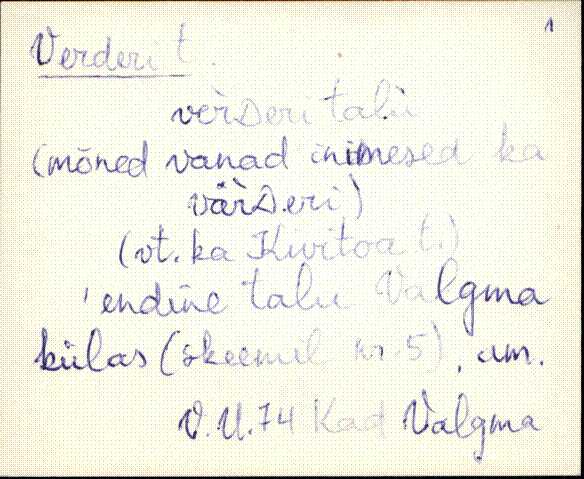 1
Verderi t.
vèrDeri talu
(mõned vanad inimesed ka
värDeri)
(vt. ka Kivitoa t.)
'endine talu Valgma
külas (skeemil nr. 5), um.
V.U.74 Kad Valgma